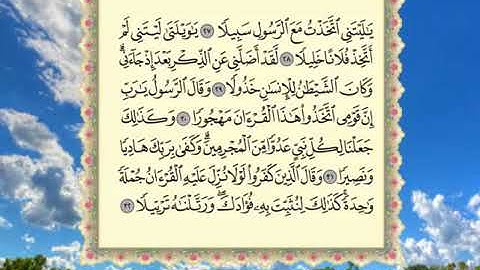 يَٰلَيْتَنِي ٱتَّخَذْتُ مَعَ ٱلرَّسُولِ سَبِيلًا ٢٧ يَٰوَيْلَتَىٰ لَيْتَنِي لَمْ
أَتَّخِذْ فُلَانًا خَلِيلًا ٢٨ لَّقَدْ أَضَلَّنِي عَنِ ٱلذِّكْرِ بَعْدَ إِذْ جَآءَنِي ۗ
وَكَانَ ٱلشَّيْطَٰنُ لِلْإِنسَٰنِ خَذُولًا ٢٩ وَقَالَ ٱلرَّسُولُ يَٰرَبِّ
إِنَّ قَوْمِي ٱتَّخَذُوا۟ هَٰذَا ٱلْقُرْءَانَ مَهْجُورًا ٣٠ وَكَذَٰلِكَ
جَعَلْنَا لِكُلِّ نَبِيٍّ عَدُوًّا مِّنَ ٱلْمُجْرِمِينَ ۗ وَكَفَىٰ بِرَبِّكَ هَادِيًا
وَنَصِيرًا ٣١ وَقَالَ ٱلَّذِينَ كَفَرُوا۟ لَوْلَا نُزِّلَ عَلَيْهِ ٱلْقُرْءَانُ جُمْلَةً
وَٰحِدَةً ۚ كَذَٰلِكَ لِنُثَبِّتَ بِهِۦ فُؤَادَكَ ۖ وَرَتَّلْنَٰهُ تَرْتِيلًا ٣٢